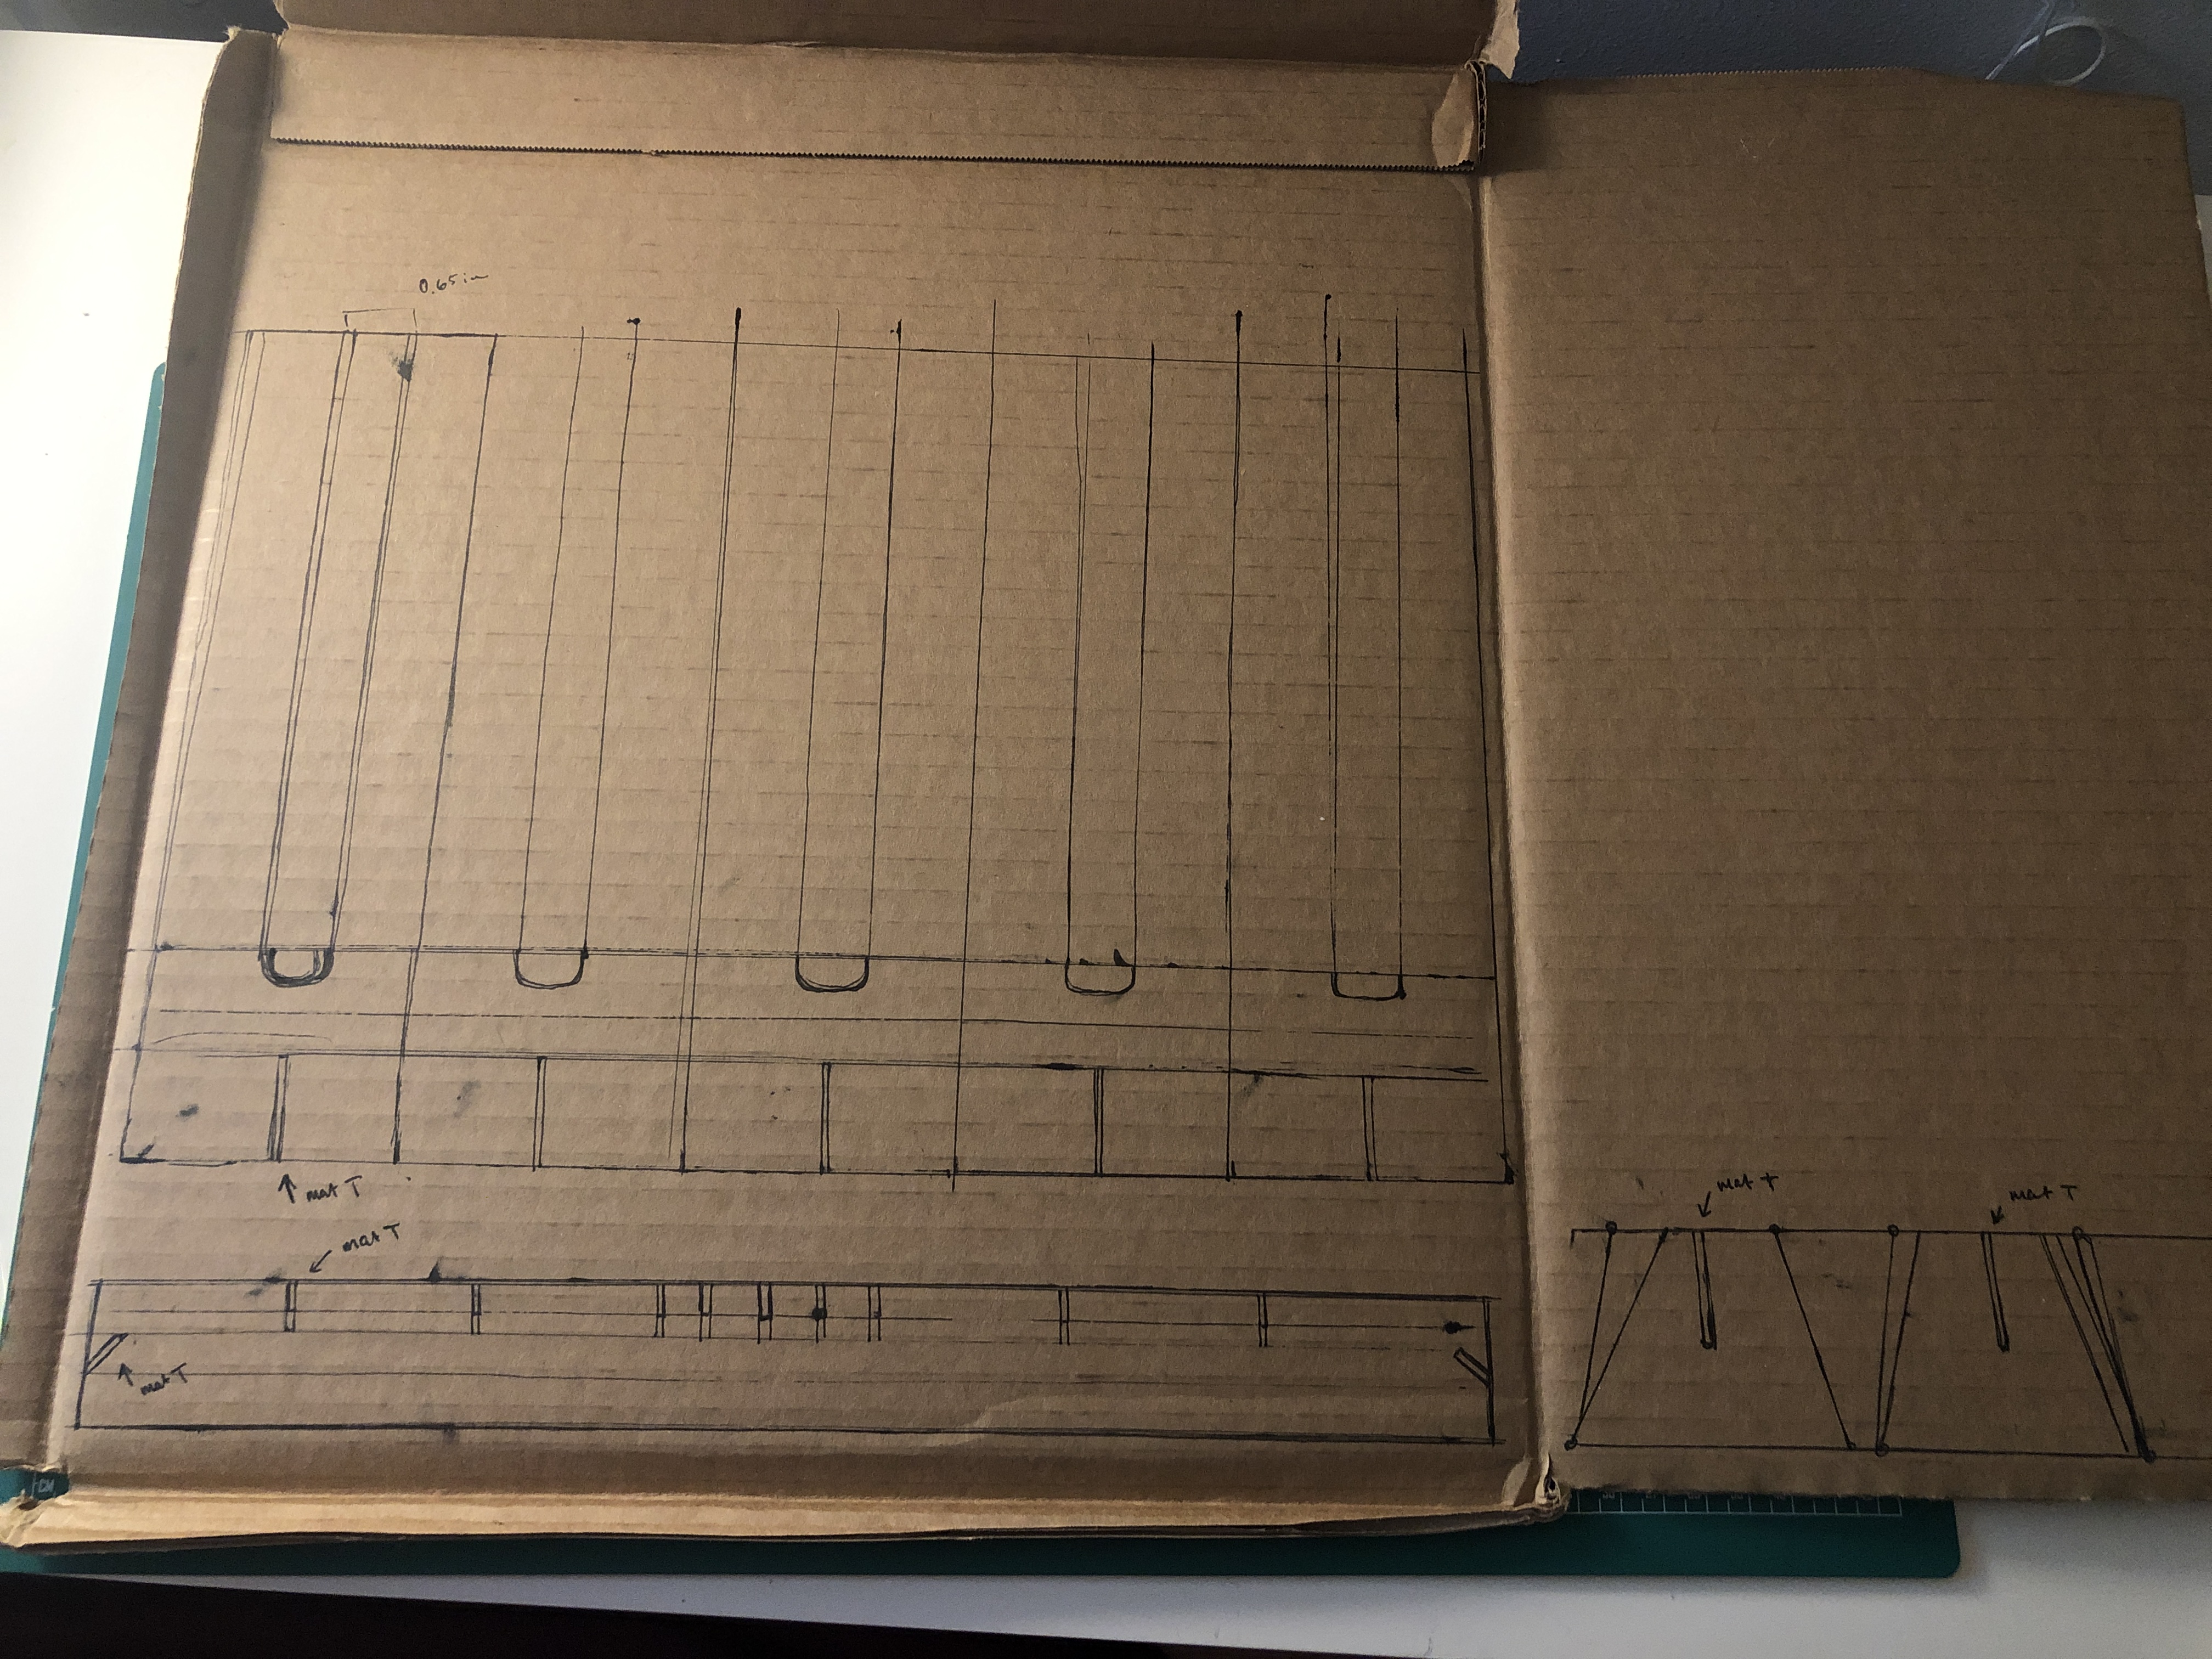 0.65 in
mat T
mat T
mat T
mat T
mat T
CM